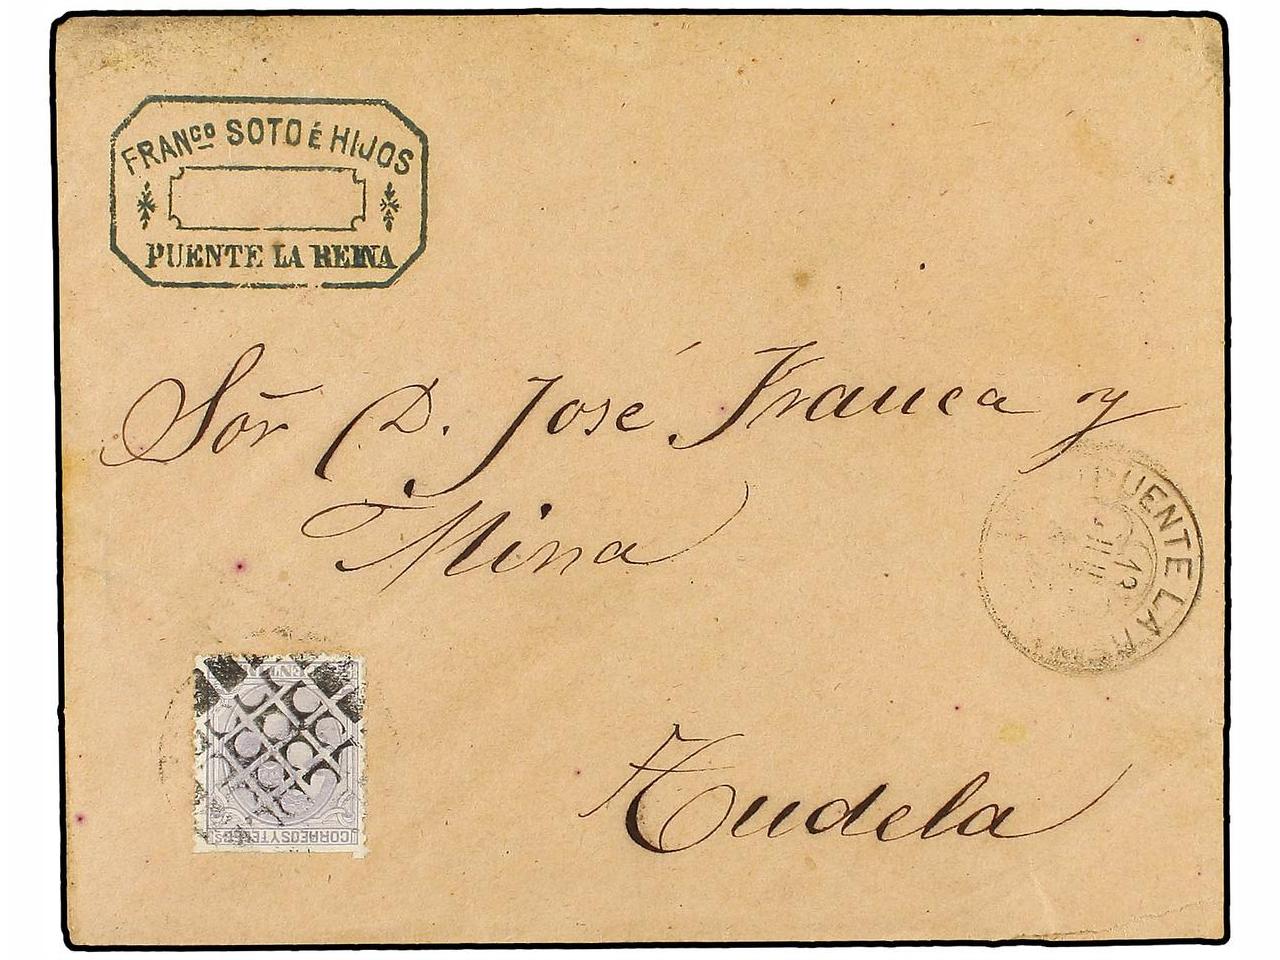 FRANCO SOTO É HIJOS
PUENTE LA REINA
Sōr D. José Franca y
Mina
PUENTE LA
Tudela
CORREOS Y TELEGS